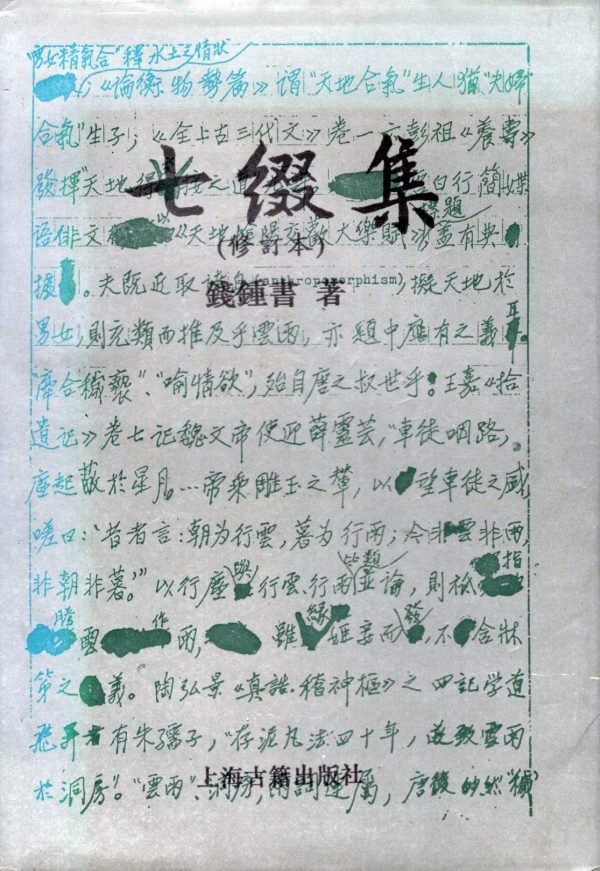 "男女精氣合"釋水土之情狀
《論衡·物勢篇》謂"天地合氣"生人猶"夫婦
合氣"生子；《全上古三代文》卷一六彭祖《養壽》
發揮"天地得交接之道"
白行簡
七綴集
題
語俳文 以《天地陰陽交歡大樂賦》 蓋有典
(修訂本)
據。夫既近取諸身(anthropomorphism)，擬天地於
錢鍾書 著
男女，則充類而推及乎雲雨，亦題中應有之義耳。
"喻情欲"，殆自唐之叔世乎。王嘉《拾
遺記》卷七記魏文帝使迎薛靈芸，"車徒咽路，
塵起蔽於星月。…帝乘雕玉之輦，以望車徒之盛，
嗟曰：'昔者言：朝为行雲，暮为行雨；今非雲非雨，
非朝非暮。'"以行塵與行雲、行雨並論，則
指
騰雲作雨，雖緣姬妾而發，不含狀
第之義。陶弘景《真誥·稽神樞》之四記学道
飛升者有朱孺子，"存泥丸法四十年，遂致雲雨
於洞房"。"雲雨"、洞房，兩詞連屬，唐後
上海古籍出版社